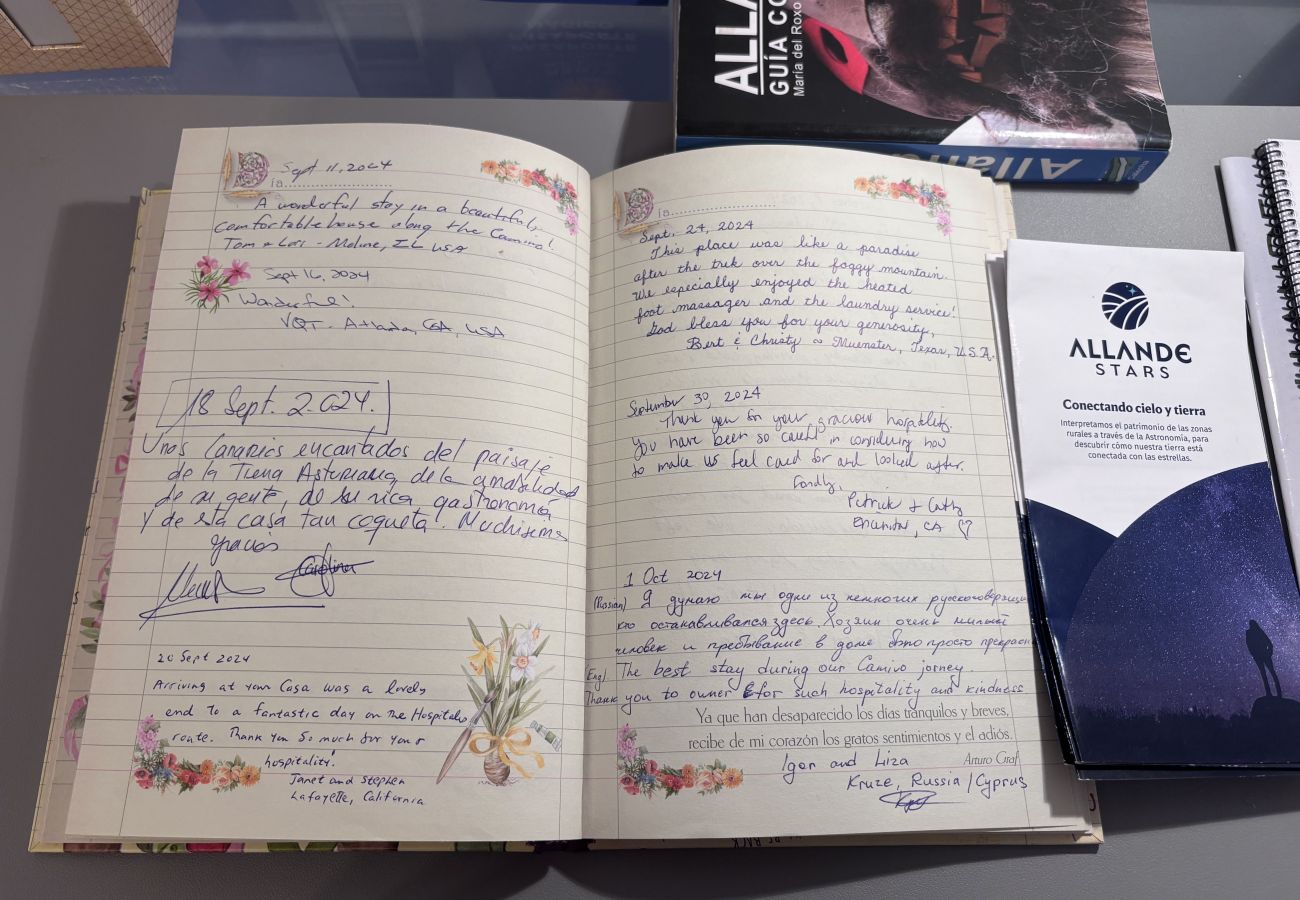 Sept 11, 2024
ía
A wonderful stay in a beautiful,
comfortable house along the Camino!
Tom & Lori - Moline, IL USA
Sept 16, 2024
Wonderful!
VQT - Atlanta, GA, USA
18 Sept. 2.024.
Unos Canarios encantados del paisaje
de la Tierra Asturiana, de la amabilidad
de su gente, de su rica gastronomía
y de esta casa tan coqueta. Muchísimas
gracias
Carolina
20 Sept 2024
Arriving at your Casa was a lovely
end to a fantastic day on the Hospitales
route. Thank you so much for your
hospitality!
Janet and Stephen
Lafayette, California
ía
Sept. 24, 2024
This place was like a paradise
after the trek over the foggy mountain.
We especially enjoyed the heated
foot massager and the laundry service!
God bless you for your generosity,
Bert & Christy ∞ Muenster, Texas, U.S.A.
September 30, 2024
Thank you for your gracious hospitality.
You have been so careful in considering how
to make us feel cared for and looked after.
Fondly,
Patrick & Cathy
Encinitas, CA ♡
1 Oct 2024
(Russian) Я думаю мы одни из немногих русскоговорящи
кто останавливался здесь. Хозяин очень милый
человек и пребывание в доме было просто прекрасн
(Eng) The best stay during our Camino jorney.
Thank you to owner for such hospitality and kindness
Ya que han desaparecido los días tranquilos y breves,
recibe de mi corazón los gratos sentimientos y el adiós.
Arturo Graf
Igor and Liza
Kruze, Russia / Cyprus
ALLA
GUÍA CO
María del Roxo
Allan
ALLANDE
STARS
Conectando cielo y tierra
Interpretamos el patrimonio de las zonas
rurales a través de la Astronomía, para
descubrir cómo nuestra tierra está
conectada con las estrellas.